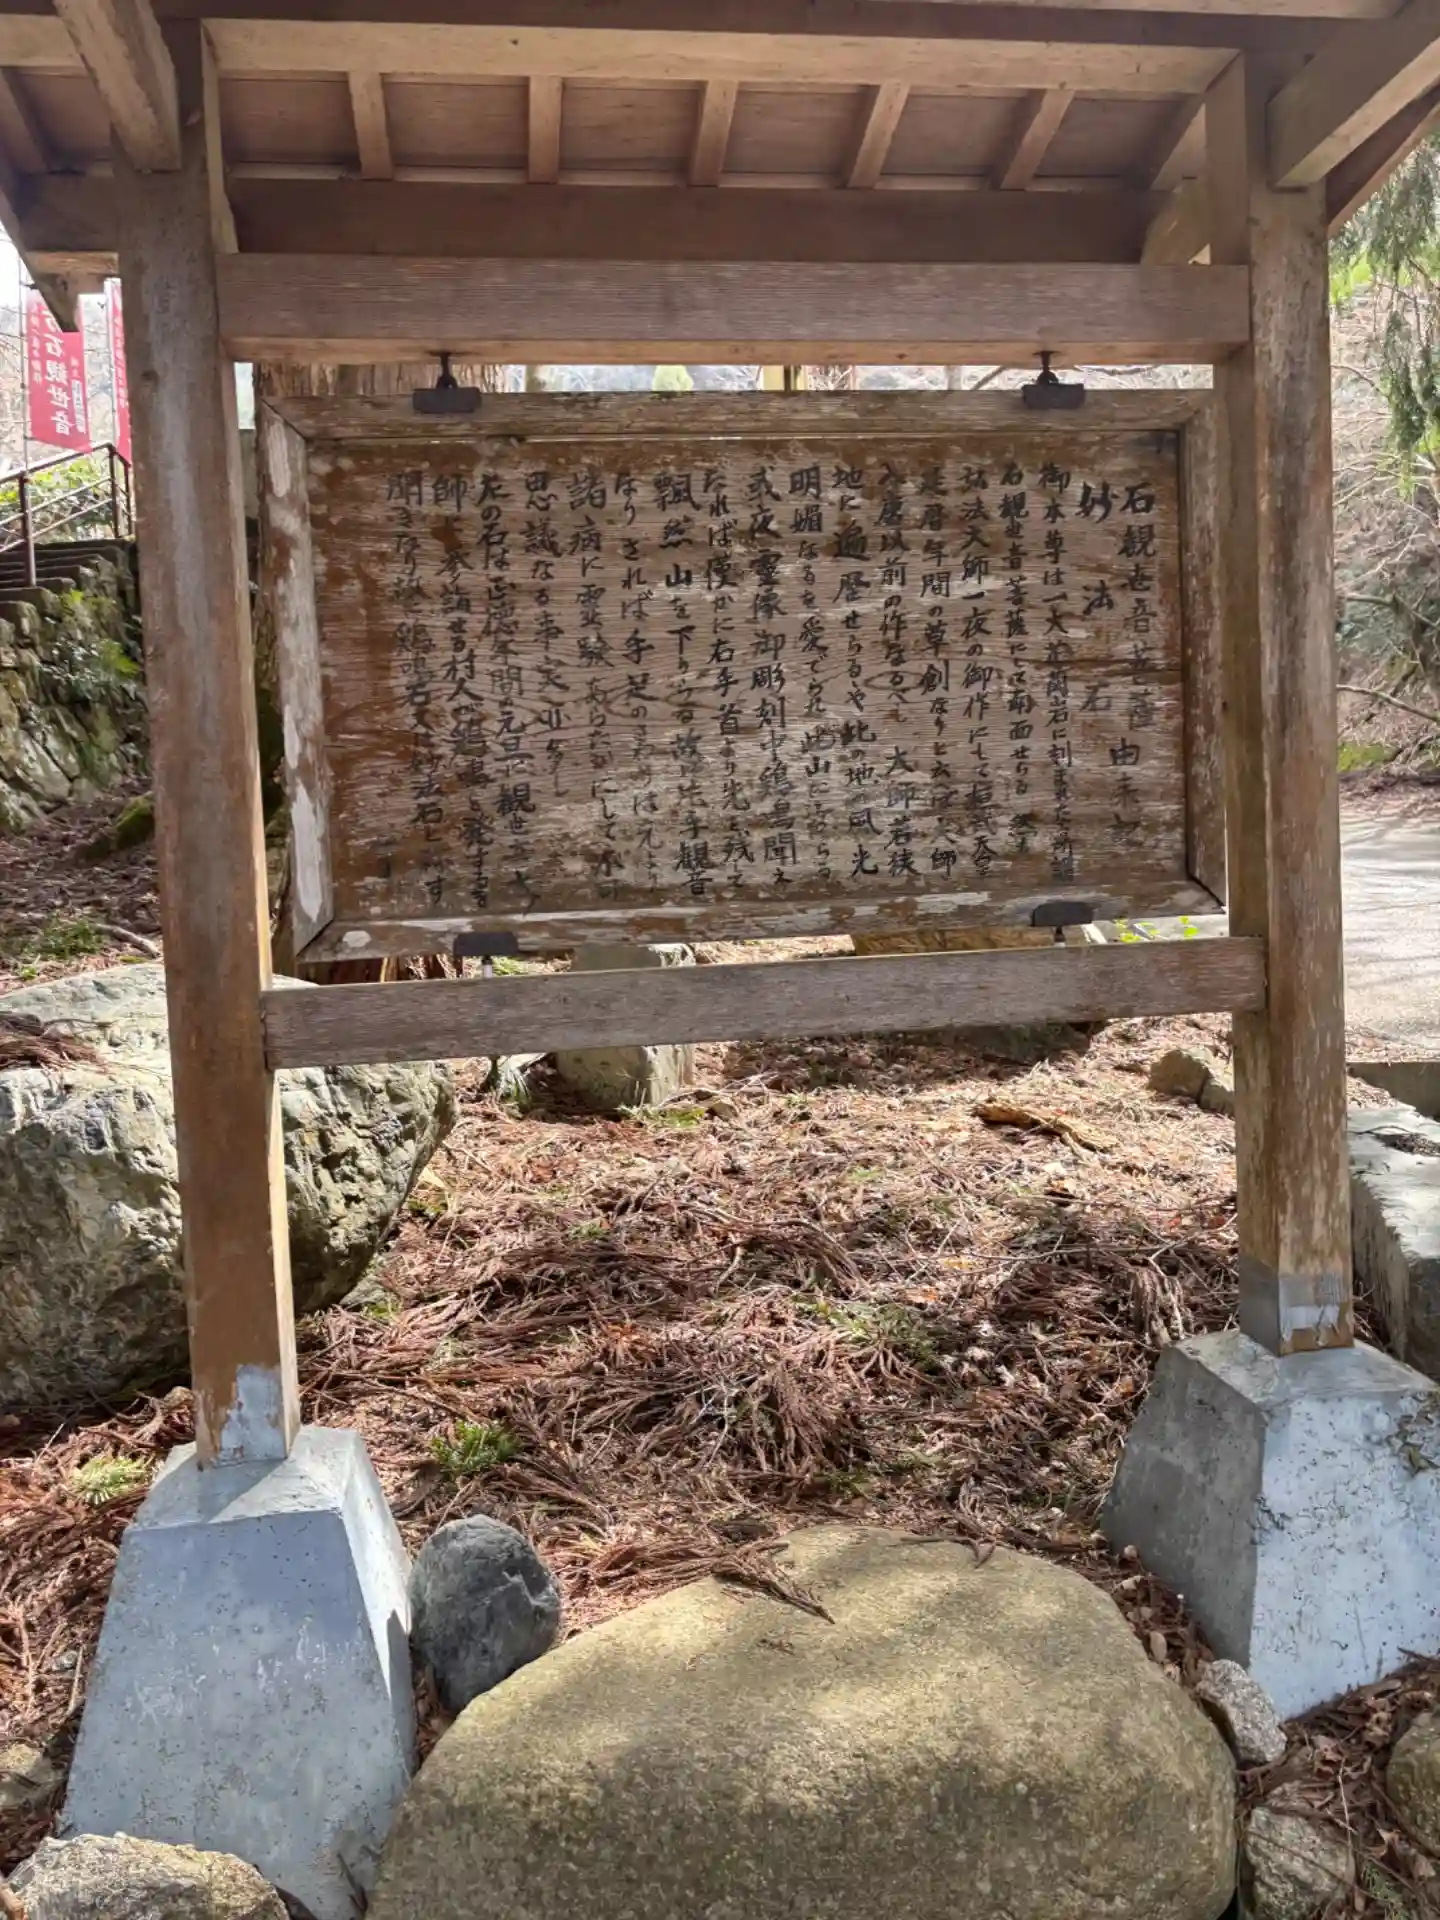 石観世音菩薩由来記
妙法石
御本尊は一大花崗岩に刻まれた所謂
石観世音菩薩にして南面せらる
弘法大師一夜の御作にして桓武天皇
延暦年間の草創なりと云へば大師
入唐以前の作なるべし 大師若狭
地に遍歴せらるるや此の地の風光
明媚なるを愛でられ此山に
或夜霊像御彫刻中鶏鳥聞え
たれば僅かに右手首より先を残して
飄然山を下りらる故に片手観音
なり されば手足の は元より
諸病に霊験あらたかにして不可
思議なる事実亦多し
左の石は正徳年間の元旦に観世音
師に参詣せる村人が鶏鳴を発するを
聞きたり故に鶏鳴石又は妙法石と称す
石観世音